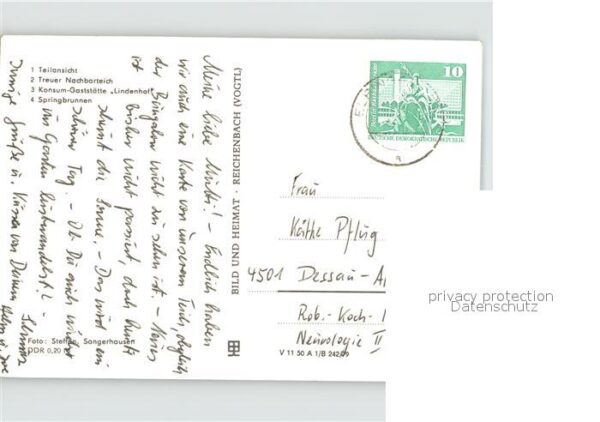 1 Teilansicht
2 Treuer Nachbarteich
3 Konsum-Gaststätte „Lindenhof"
4 Springbrunnen
Meine liebe Mutti! – Endlich haben
wir auch eine Karte von unserem Teich, obgleich
der Bungalow nicht zu sehen ist. –
ist bisher nicht passiert, doch heute
scheint die Sonne. – Das wird ein
schöner Tag. – Ob Du auch wieder
im Garten lustwandelst? –
Innige Grüße u. Küsse von Deinem
Foto: Steffen, Sangerhausen
DDR 0,20
BILD UND HEIMAT · REICHENBACH (VOGTL)
V 11 50 A 1/B 242/09
10
DEUTSCHE DEMOKRATISCHE REPUBLIK
a
Frau
Käthe Pflug
4501 Dessau-A
Rob.-Koch-
Neurologie II
privacy protection
Datenschutz